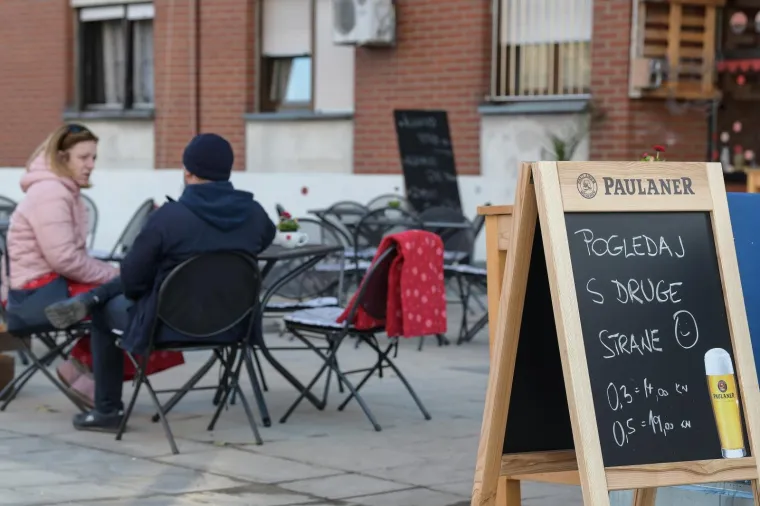 PAULANER
POGLEDAJ
S DRUGE
STRANE
0,3 = 14,00 KN
0,5 = 19,00 KN
PAULANER